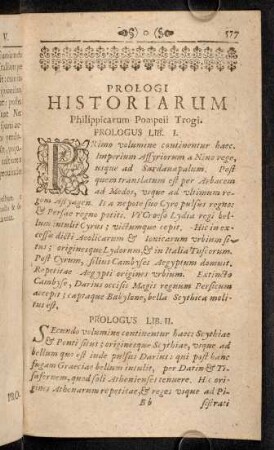 577
PROLOGI
HISTORIARUM
Philippicarum Pompeii Trogi.
PROLOGUS LIB. I.
PRimo volumine continentur haec.
Imperium Assyriorum a Nino rege,
usque ad Sardanapalum. Post
quem translatum est per Arbacem
ad Medos, usque ad ultimum re-
gem Astyagen. Is a nepote suo Cyro pulsus regno:
& Persae regno potiti. Vt Croeso Lydiae regi bel-
lum intulit Cyrus; victumque cepit. Hic in ex-
cessu dicti Aeolicarum & Ionicarum urbium si-
tus; originesque Lydorum, & in Italia Tuscorum.
Post Cyrum, filius Cambyses Aegyptum domuit.
Repetitae Aegypti origines urbium. Extincto
Cambyse, Darius occisis Magis regnum Persicum
accepit; captaque Babylone, bella Scythica moli-
tus est.
PROLOGUS LIB. II.
SEcundo volumine continentur haec Scythiae
& Ponti situs; originesque Scythiae, usque ad
bellum quo est inde pulsus Darius: qui post hanc
fugam Graeciae bellum intulit, per Datin & Ti-
sафernem, quod soli Athenienses tenuere. Hic ori-
gines Athenarum repetitae, & reges usque ad Pi-
Bb
sistrati
V.
PRO.